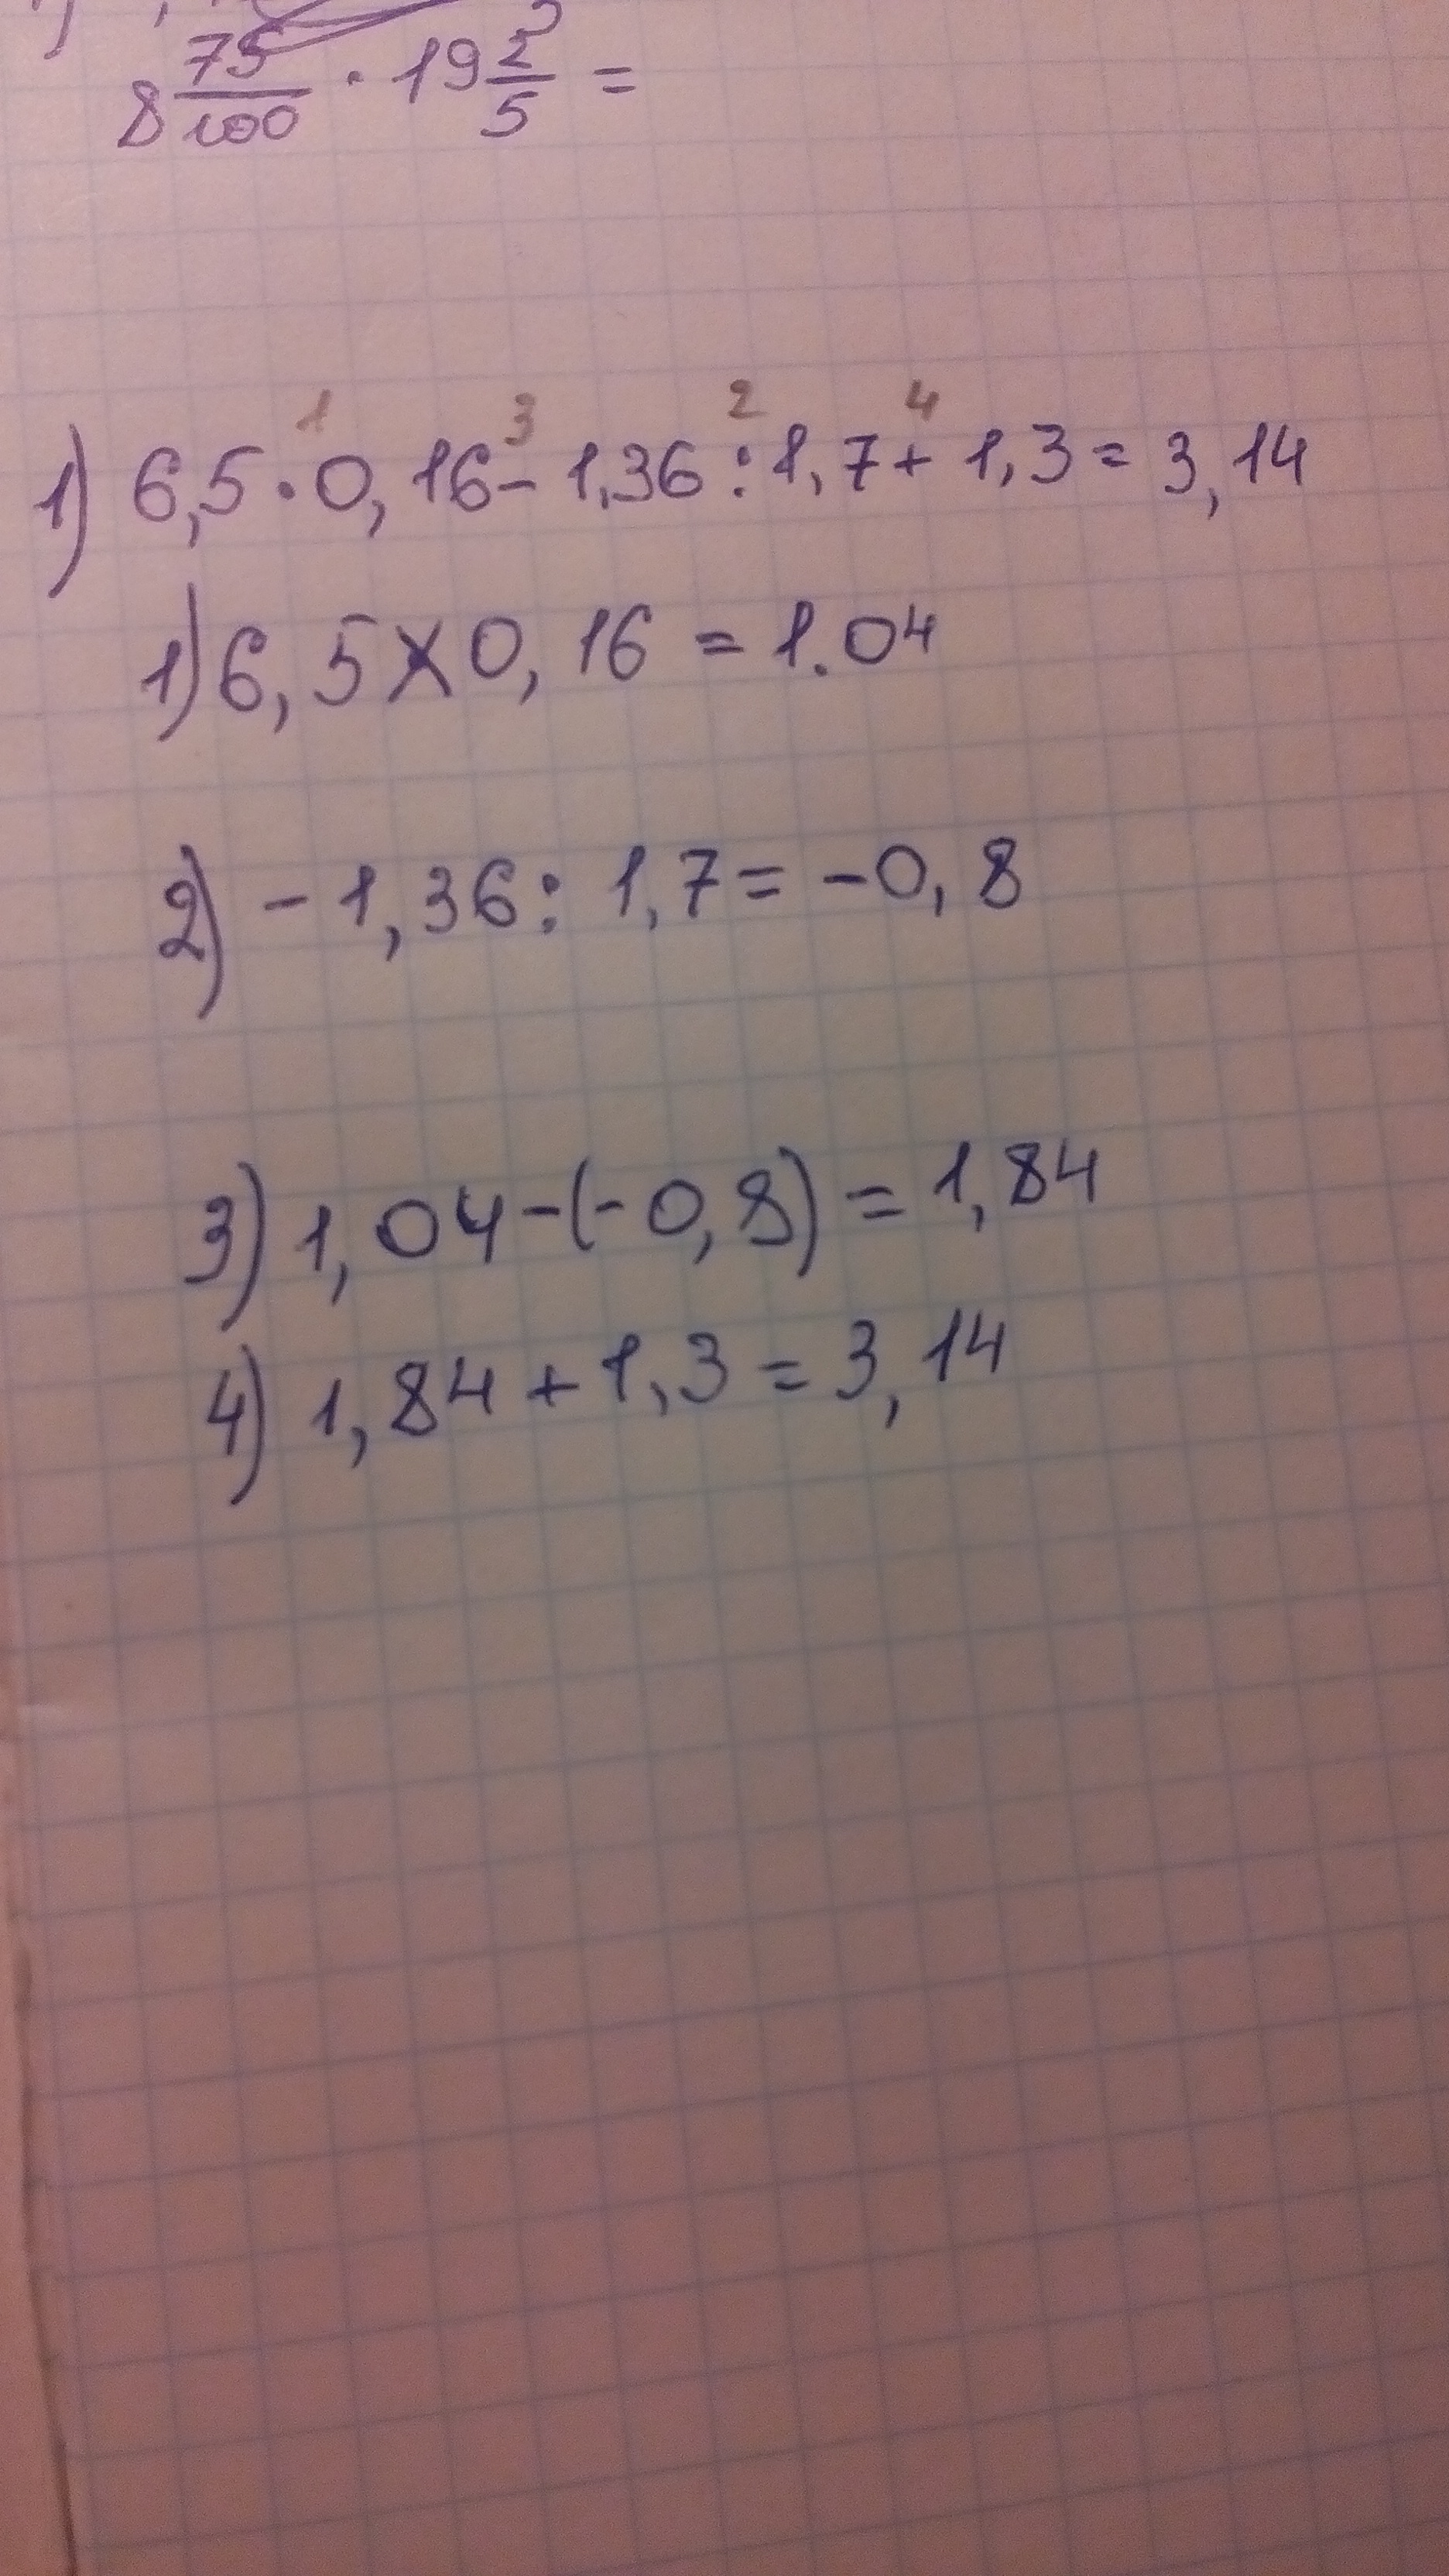 8 75/100 · 19 2/5 =
1 3 2 4
1) 6,5 · 0,16 - 1,36 : 1,7 + 1,3 = 3,14
1) 6,5 × 0,16 = 1.04
2) - 1,36 : 1,7 = -0,8
3) 1,04 - (- 0,8) = 1,84
4) 1,84 + 1,3 = 3,14